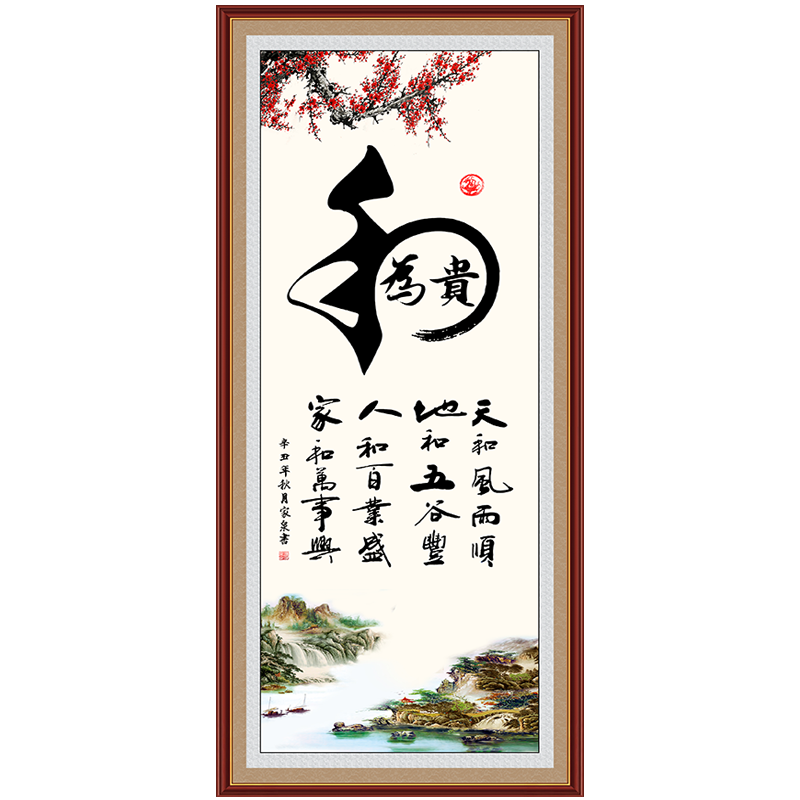 和
為貴
天和風雨順
地和五谷豐
人和百業盛
家和萬事興
辛丑年秋月家泉書